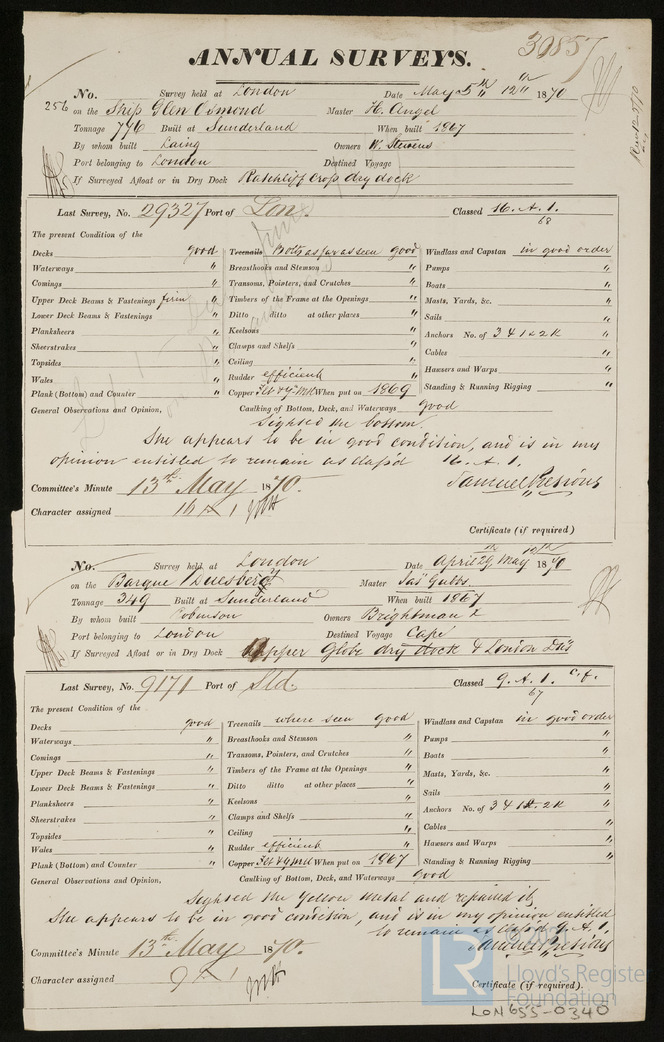 30857
ANNUAL SURVEYS.
No. Survey held at London Date May 5th 12th 1870
256 on the Ship Glen Osmond Master H. Angel
Tonnage 776 Built at Sunderland When built 1867
By whom built Laing Owners W. Stevens
Port belonging to London Destined Voyage
If Surveyed Afloat or in Dry Dock Ratchliff Cross dry dock
Last Survey, No. 29327 Port of Lon. Classed 16. A. 1. 68
The present Condition of the
Decks good
Waterways "
Comings "
Upper Deck Beams & Fastenings firm "
Lower Deck Beams & Fastenings "
Planksheers "
Sheerstrakes "
Topsides "
Wales "
Plank (Bottom) and Counter "
Treenails Bolts as far as seen good
Breasthooks and Stemson "
Transoms, Pointers, and Crutches "
Timbers of the Frame at the Openings "
Ditto ditto at other places "
Keelsons "
Clamps and Shelfs "
Ceiling "
Rudder efficient "
Copper Felt & Y. M. When put on 1869
Windlass and Capstan in good order
Pumps "
Boats "
Masts, Yards, &c. "
Sails "
Anchors No. of 3 4 1 s 2 K "
Cables "
Hawsers and Warps "
Standing & Running Rigging "
General Observations and Opinion, Caulking of Bottom, Deck, and Waterways good
Sighted the bottom.
She appears to be in good condition, and is in my
opinion entitled to remain as Class'd 16. A. 1.
Samuel Pretious
Committee's Minute 13th May 1870.
Character assigned 16 A 1
Certificate (if required)
No. Survey held at London Date April 29th May 10th 1870
on the Barque Duesbery Master Jas Gubbs
Tonnage 349 Built at Sunderland When built 1867
By whom built Robinson Owners Brightman &
Port belonging to London Destined Voyage Cape
If Surveyed Afloat or in Dry Dock Upper Globe dry dock & London Dks
Last Survey, No. 9171 Port of Sld. Classed 9. A. 1. c.f. 67
The present Condition of the
Decks good
Waterways "
Comings "
Upper Deck Beams & Fastenings "
Lower Deck Beams & Fastenings "
Planksheers "
Sheerstrakes "
Topsides "
Wales "
Plank (Bottom) and Counter "
Treenails where seen good
Breasthooks and Stemson "
Transoms, Pointers, and Crutches "
Timbers of the Frame at the Openings "
Ditto ditto at other places "
Keelsons "
Clamps and Shelfs "
Ceiling "
Rudder efficient "
Copper Felt & Y Mtl When put on 1867
Windlass and Capstan in good order
Pumps "
Boats "
Masts, Yards, &c. "
Sails "
Anchors No. of 3 4 1 st. 2 K "
Cables "
Hawsers and Warps "
Standing & Running Rigging "
General Observations and Opinion, Caulking of Bottom, Deck, and Waterways good
Sighted the Yellow Metal and repaired it
She appears to be in good condition, and is in my opinion entitled
to remain as Class'd 9. A. 1.
Samuel Pretious
Committee's Minute 13th May 1870.
Character assigned 9 A 1
Certificate (if required).
LR Lloyd's Register
Foundation
LON655-0340